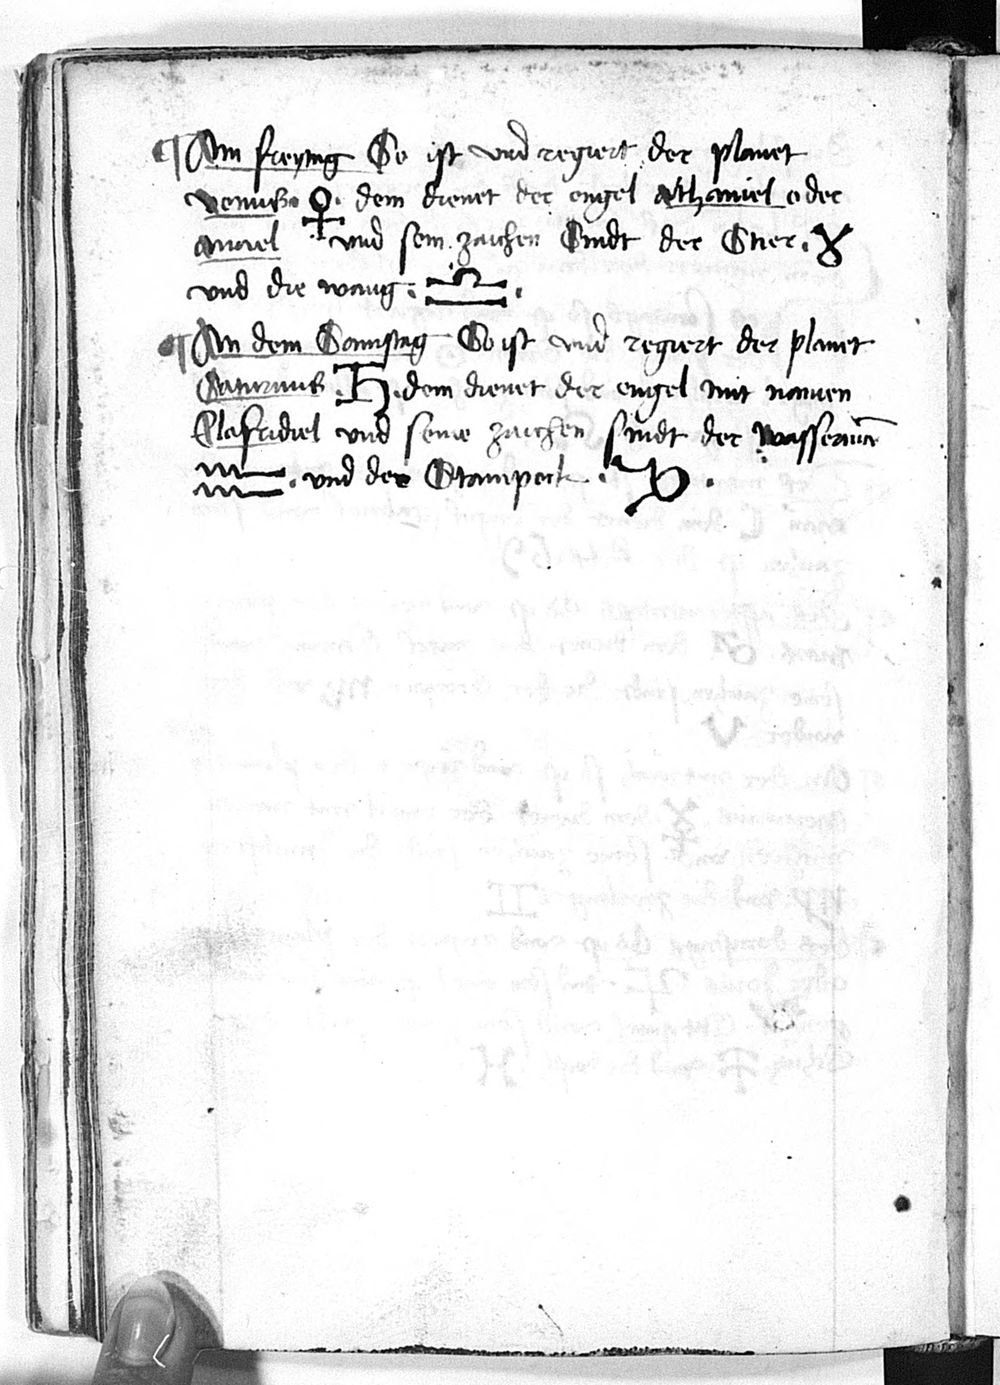 ¶ Am freytag So ist vnd regiert der planet
venus ♀. dem dienet der engel Athaniel oder
anael vnd sein zaichen Sindt der Stier. ♉
vnd die waag. ♎.
¶ An dem Samstag So ist vnd regiert der planet
Saturnus .♄. dem dienet der engel mit namen
vnd seine zaichen sindt der wasserman
♒. vnd der Stainpock. ♑.